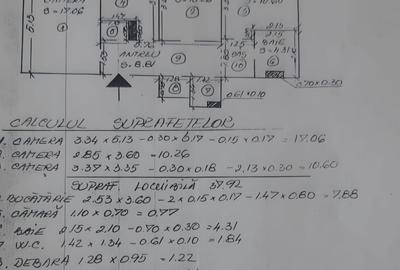 CAMERA
S=17.06
1
5.13
4
1.47
8
ANTREU
S=8.81
9
2.15
2.15
BAIE
S=4.31
6
1.25
10
0.70x0.30
7
0.61x0.10
CALCULUL SUPRAFETELOR
1. CAMERA 3.34 x 5.13 - 0.30 x 0.17 - 0.15 x 0.17 = 17.06
CAMERA 2.85 x 3.60 = 10.26
CAMERA 3.37 x 3.35 - 0.30 x 0.18 - 2.13 x 0.30 = 10.60
SUPRAF. LOCUIBILĂ 37.92
BUCĂTĂRIE 2.53 x 3.60 - 2 x 0.15 x 0.17 - 1.47 x 0.80 = 7.88
CĂMARĂ 1.10 x 0.70 = 0.77
BAIE 2.15 x 2.10 - 0.70 x 0.30 = 4.31
7 W.C. 1.42 x 1.34 - 0.61 x 0.10 = 1.84
8. DEBARA 1.28 x 0.95 = 1.22